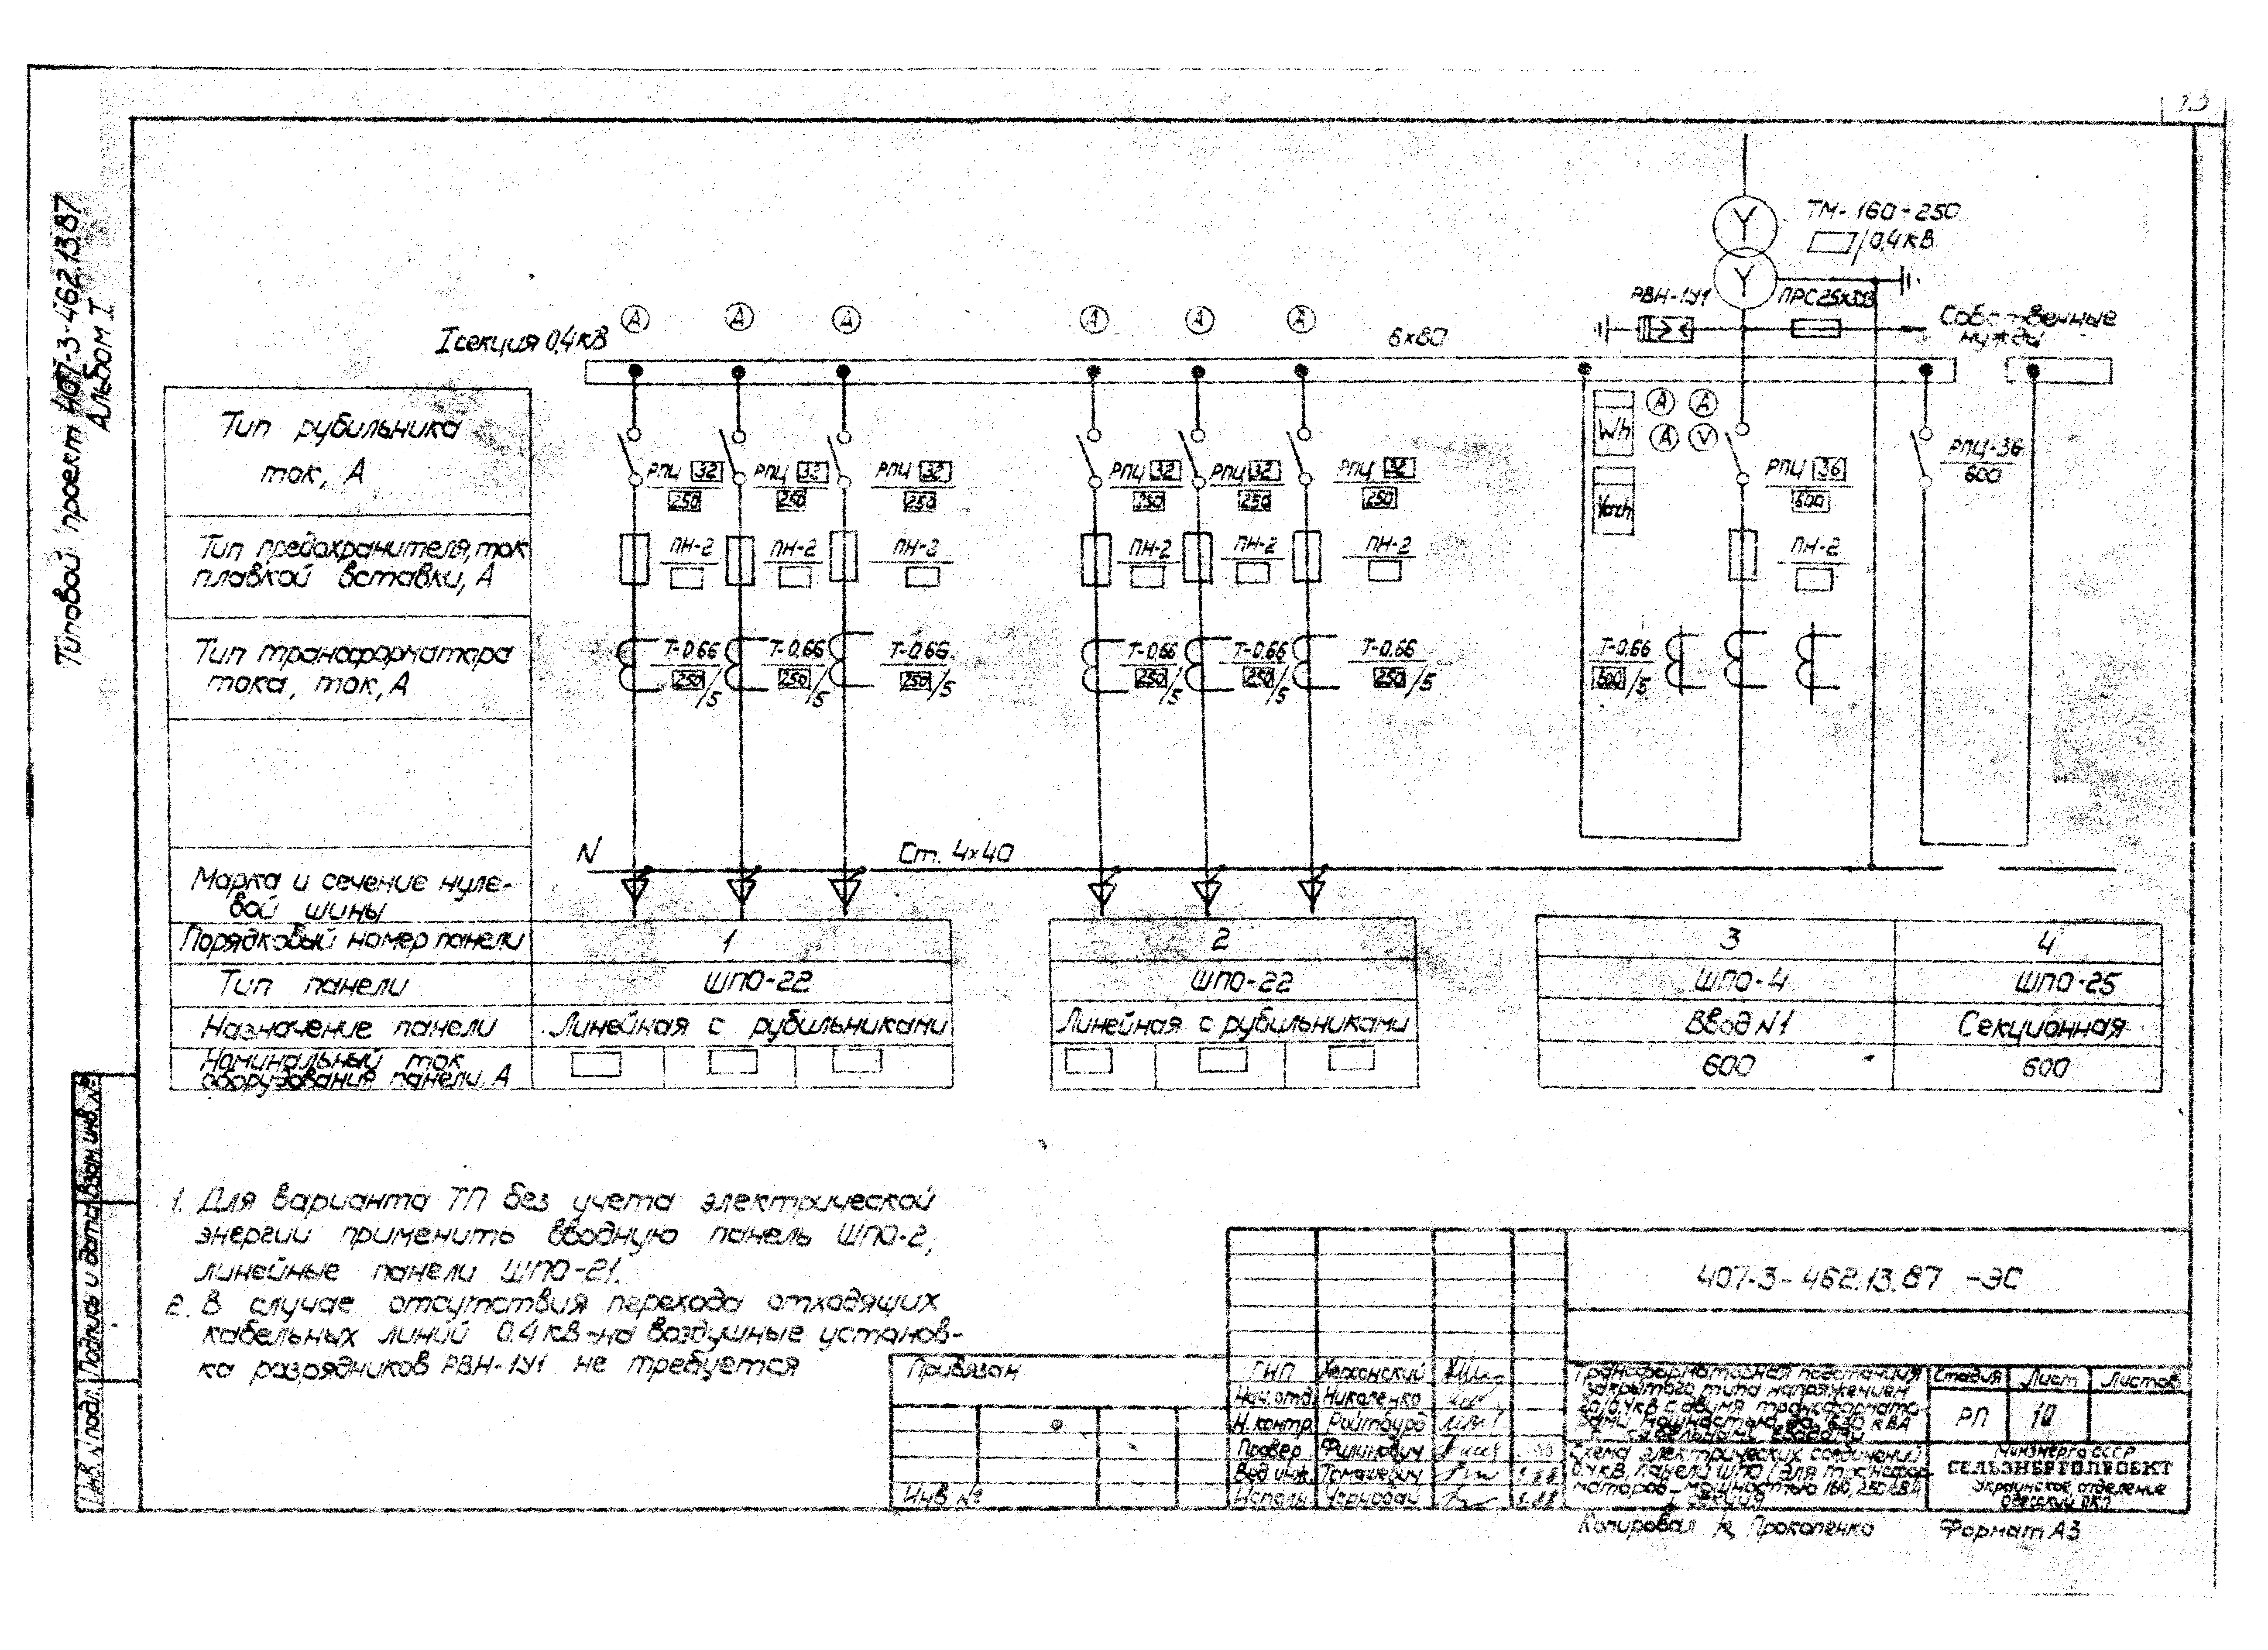 Типовой проект 407-3-462.13.87
Альбом I
ТМ-160-250
/0,4кВ
РВН-1У1
Собственные
нужды
I секция 0,4кВ
А А А А А А
6х80
Тип рубильника
ток, А
РПЦ 32
250
РПЦ 32
250
РПЦ 32
250
РПЦ 32
250
РПЦ 32
250
РПЦ 32
250
Wh
А А
А V
РПЦ 36
600
РПЦ-36
600
Тип предохранителя, ток
плавкой вставки, А
ПН-2 ПН-2 ПН-2 ПН-2 ПН-2 ПН-2 ПН-2
Тип трансформатора
тока, ток, А
Т-0,66
250/5
Т-0,66
250/5
Т-0,66
250/5
Т-0,66
250/5
Т-0,66
250/5
Т-0,66
250/5
Т-0,66
600/5
N
Ст. 4х40
Марка и сечение нуле-
вой шины
Порядковый номер панели 1 2 3 4
Тип панели ШПО-22 ШПО-22 ШПО-4 ШПО-25
Назначение панели Линейная с рубильниками Линейная с рубильниками Ввод N1 Секционная
Номинальный ток
оборудования панели, А 600 600
1. Для варианта ТП без учета электрической
энергии применить вводную панель ШПО-2,
линейные панели ШПО-21.
2. В случае отсутствия перехода отходящих
кабельных линий 0.4кВ на воздушные установ-
ка разрядников РВН-1У1 не требуется
407-3-462.13.87 -ЭС
Привязан
Инв №
ГИП Херсонский
Нач. отд. Николенко
Н.контр. Ройтбурд
Провер. Филинович
Вед инж. Томашевич
Исполн. Чернован 1.88
Трансформаторная подстанция
закрытого типа напряжением
с двумя трансформато-
рами мощностью до 630 кВА
с кабельными вводами
Стадия Лист Листов
РП 10
Схема электрических соединений
0.4кВ, панели ШПО /для трансфор-
маторов мощностью 160, 250кВА/
I секция
Минэнерго СССР
СЕЛЬЭНЕРГОПРОЕКТ
Украинское отделение
Одесский ОКП
Копировал Прокопенко
Формат А3
Инв. N подл. Подпись и дата Взам. инв. N